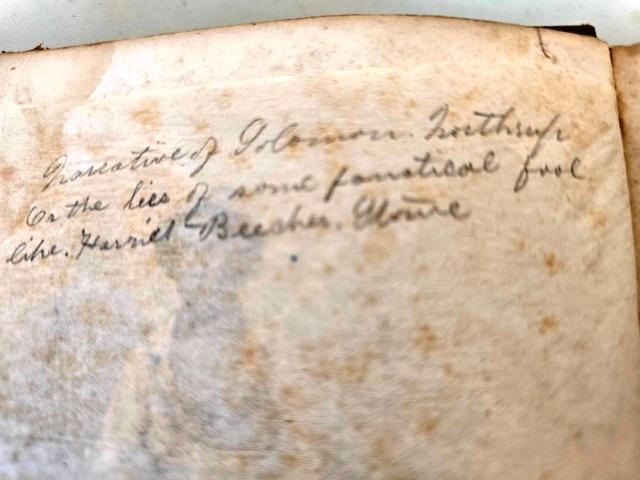 Narrative of Solomon. Northrup
Or the lies of some fanatical fool
like. Harriet Beecher. Stowe